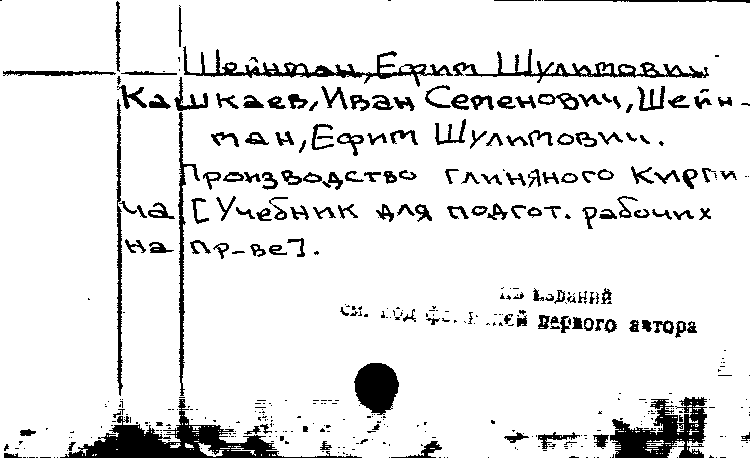 Шейнман, Ефим Шулимович
Кашкаев, Иван Семенович, Шейн-
ман, Ефим Шулимович.
Производство глиняного кирпи-
ча [Учебник для подгот. рабочих
на пр-ве].
изданий
см. под фамилией первого автора